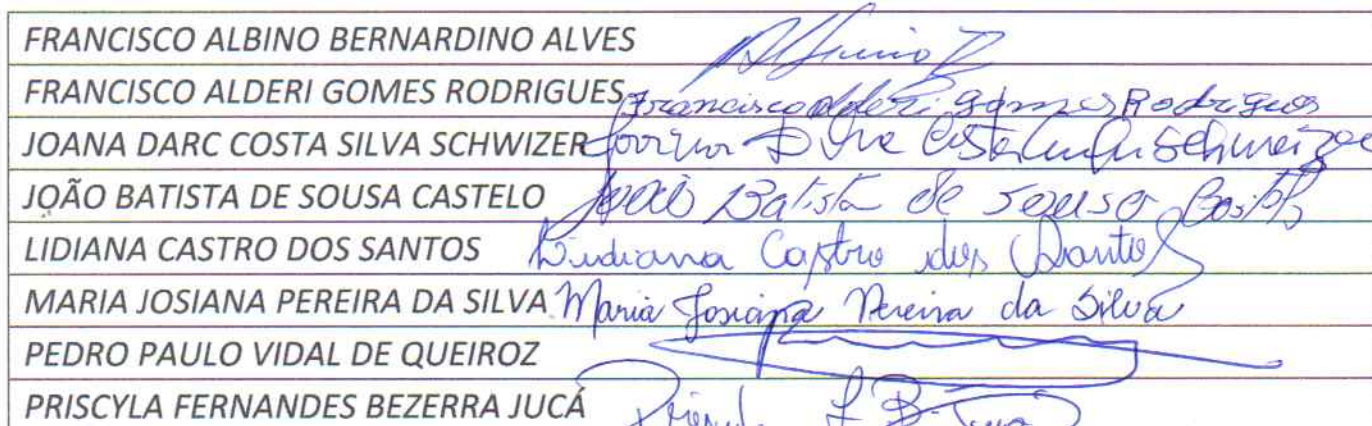 FRANCISCO ALBINO BERNARDINO ALVES
FRANCISCO ALDERI GOMES RODRIGUES Francisco Alderi Gomes Rodrigues
JOANA DARC COSTA SILVA SCHWIZER Costa Schweizer
JOÃO BATISTA DE SOUSA CASTELO João Batista de
LIDIANA CASTRO DOS SANTOS Lidiana Castro dos Santos
MARIA JOSIANA PEREIRA DA SILVA Maria Josiana Pereira da Silva
PEDRO PAULO VIDAL DE QUEIROZ
PRISCYLA FERNANDES BEZERRA JUCÁ